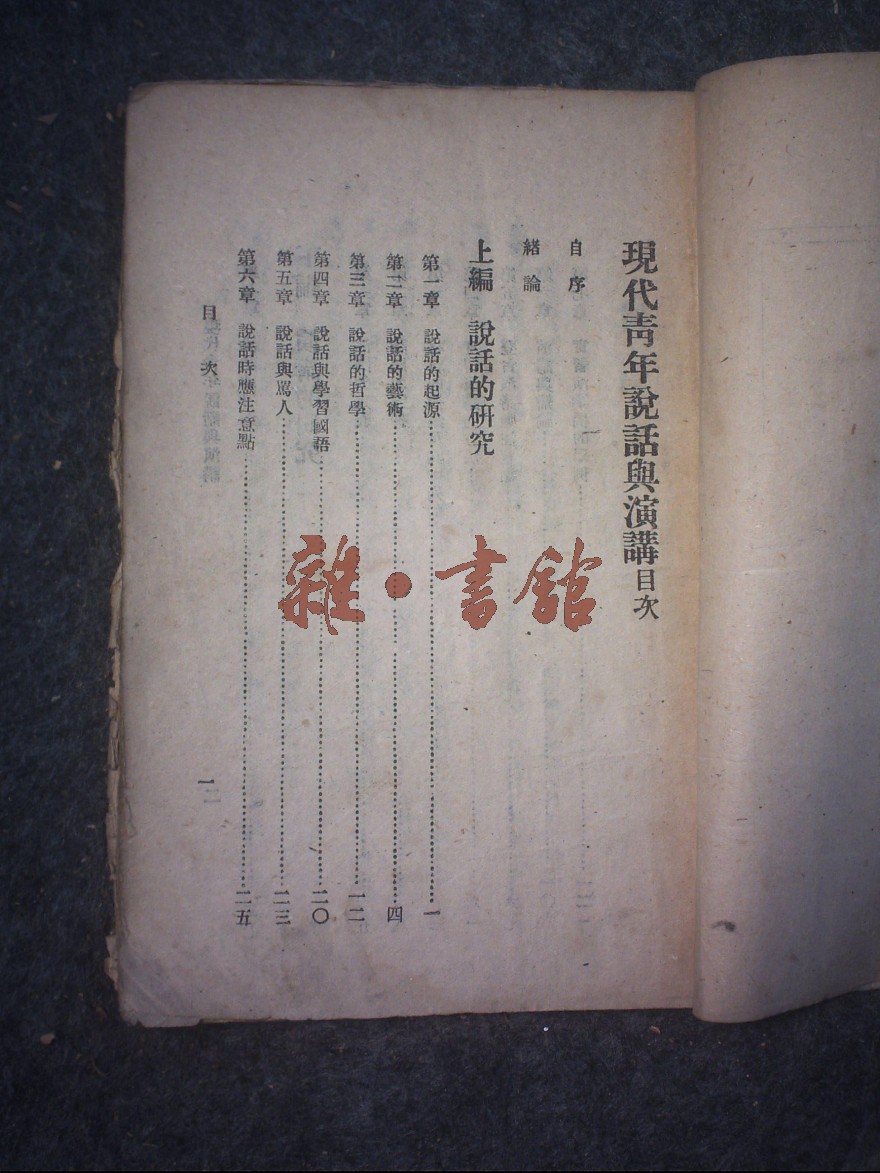 現代靑年說話與演講目次
自序
緒論
上編 說話的硏究
第一章 說話的起源 一
第二章 說話的藝術 四
第三章 說話的哲學 一二
第四章 說話與學習國語 二〇
第五章 說話與罵人 二三
第六章 說話時應注意點 二五
目次
一
雜·書館